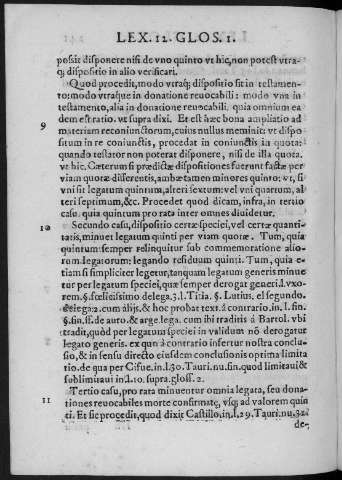 LEX. 12. GLOS. 1.
possit disponere nisi de vno quinto vt hic, non potest vtra-
q; dispositio in alio verificari.
Quod procedit, modo vtraq; dispositio sit in testamen-
to: modo vtraque in donatione reuocabili: modo vna in
testamento, alia in donatione reuocabili. quia omnium ea
dem est ratio. vt supra dixi. Et est hæc bona ampliatio ad
9 materiam reconiunctorum, cuius nullus meminit: vt dispo
situm in re coniunctis, procedat in coniunctis in quota:
quando testator non poterat disponere, nisi de illa quota.
vt hic. Cæterum si prædictæ dispositiones fuerunt factæ per
viam quotæ differentis, ambæ tamen minores quinto: vt, si
vni sit legatum quintum, alteri sextum: vel vni quartum, al
teri septimum, &c. Procedet quod dicam, infra, in tertio
casu. quia quintum pro rata inter omnes diuidetur.
10 Secundo casu, dispositio certæ speciei, vel certæ quanti-
tatis, minuet legatum quinti per viam quotæ. Tum, quia
quintum semper relinquitur sub commemoratione alio-
rum legatorum: legando residuum quinti. Tum, quia e-
tiam si simpliciter legetur, tanquam legatum generis minue
tur per legatum speciei, quæ semper derogat generi. l. vxo-
rem. §. fœlicissimo de lega. 3. l. Titia. §. Lutius, el segundo.
de lega. 2. cum alijs. & hoc probat text. à contrario. in l. fin.
§. fin. ff. de auro. & arge. lega. cum ibi traditis à Bartol. vbi
tradit, quòd per legatum speciei in validum nō derogatur
legato generis. ex quo à contrario infertur nostra conclu-
sio, & in sensu directo eiusdem conclusionis optima limita
tio. de qua per Cifue. in l. 30. Tauri. nu. fin. quod limitaui &
sublimitaui in l. 10. supra. gloss. 2.
Tertio casu, pro rata minuentur omnia legata, seu dona-
11 tiones reuocabiles morte confirmatę, vsq; ad valorem quin
ti. Et sic procedit, quod dixit Castillo. in. l. 29. Tauri. nu. 32.
de-